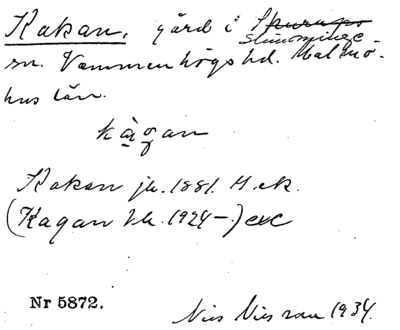 Kakan, gård i Skurups
Slimminge
sn. Vemmenhögs hd. Malmö-
hus län.
kågan
Kakan jb. 1881. H.ek.
(Kagan tk. 1924–) exc
Nr 5872.
Nils Nilsson 1934.